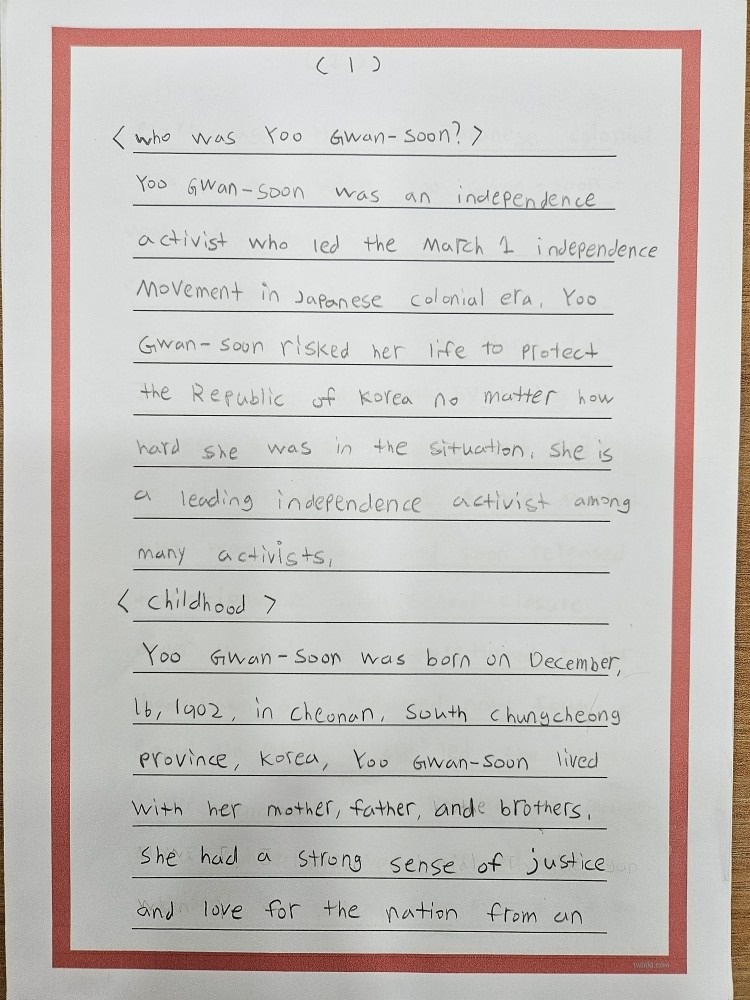 ( 1 )
< who was Yoo Gwan-soon? >
Yoo Gwan-soon was an independence
activist who led the March 1 independence
Movement in Japanese colonial era. Yoo
Gwan-soon risked her life to protect
the Republic of Korea no matter how
hard she was in the situation. she is
a leading independence activist among
many activists.
< childhood >
Yoo Gwan-soon was born on December,
16, 1902, in cheonan, south chungcheong
province, Korea, Yoo Gwan-soon lived
with her mother, father, and brothers.
she had a strong sense of justice
and love for the nation from an
twinkl.com